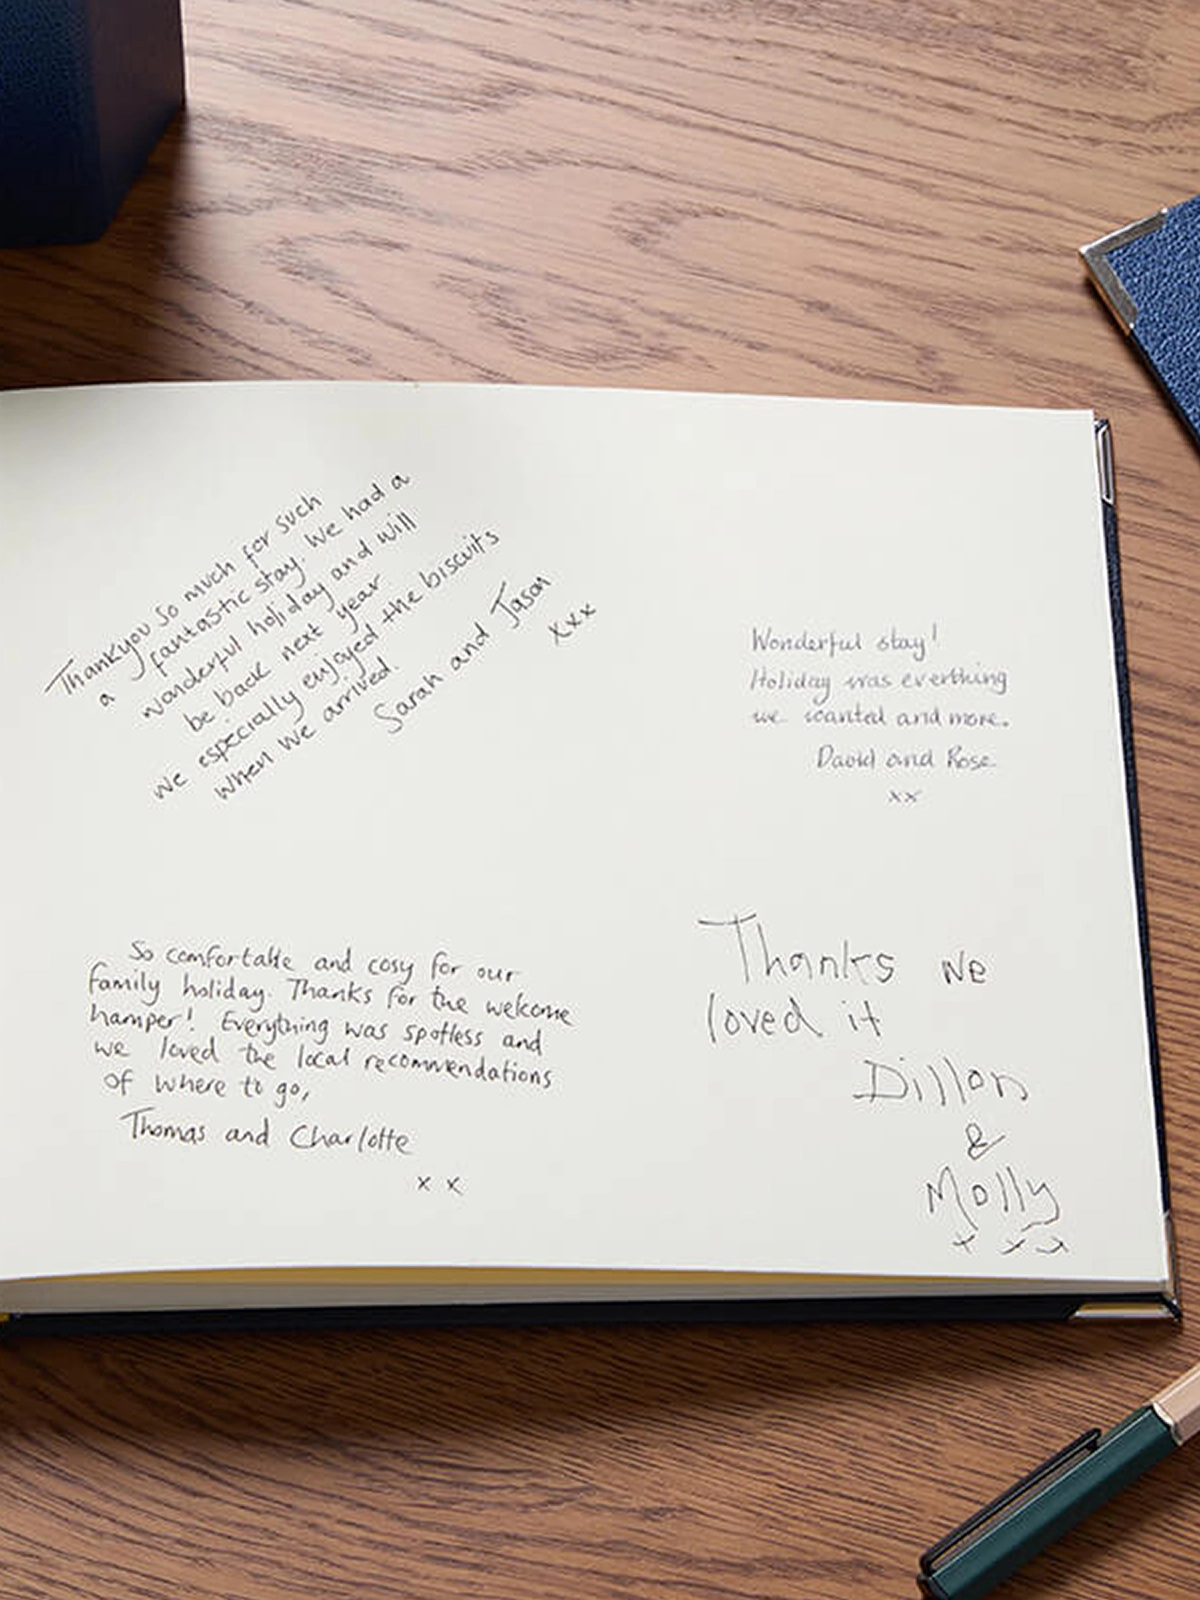 Thankyou so much for such
a fantastic stay. We had a
wonderful holiday and will
be back next year
we especially enjoyed the biscuits
when we arrived.
Sarah and Jason
xxx
Wonderful stay!
Holiday was everthing
we wanted and more.
David and Rose
xx
So comfortable and cosy for our
family holiday. Thanks for the welcome
hamper! Everything was spotless and
we loved the local recommendations
of where to go,
Thomas and Charlotte
x x
Thanks we
loved it
Dillon
&
Molly
x x x